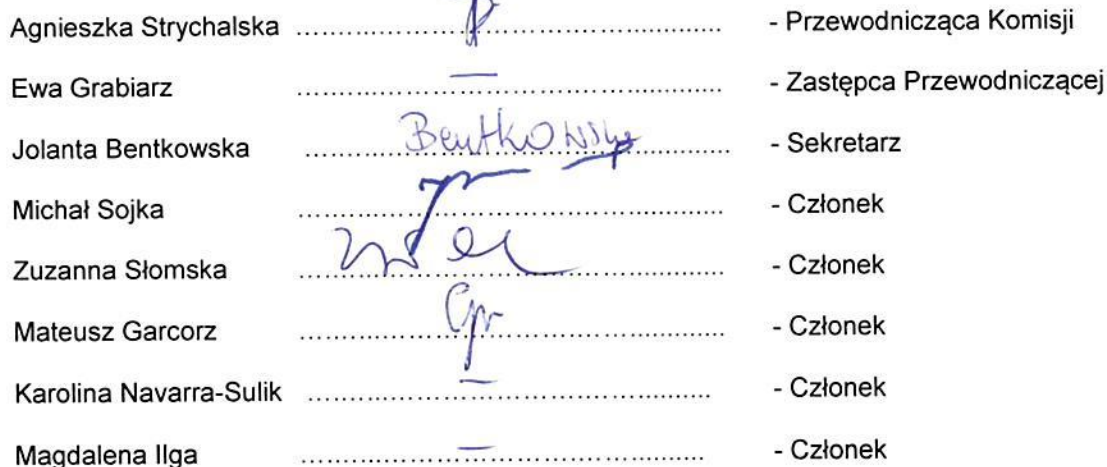 Agnieszka Strychalska ........................ - Przewodnicząca Komisji
Ewa Grabiarz ........................ - Zastępca Przewodniczącej
Jolanta Bentkowska ........ Bentkowska ........ - Sekretarz
Michał Sojka ........................ - Członek
Zuzanna Słomska ........................ - Członek
Mateusz Garcorz ........................ - Członek
Karolina Navarra-Sulik ........................ - Członek
Magdalena Ilga ........................ - Członek